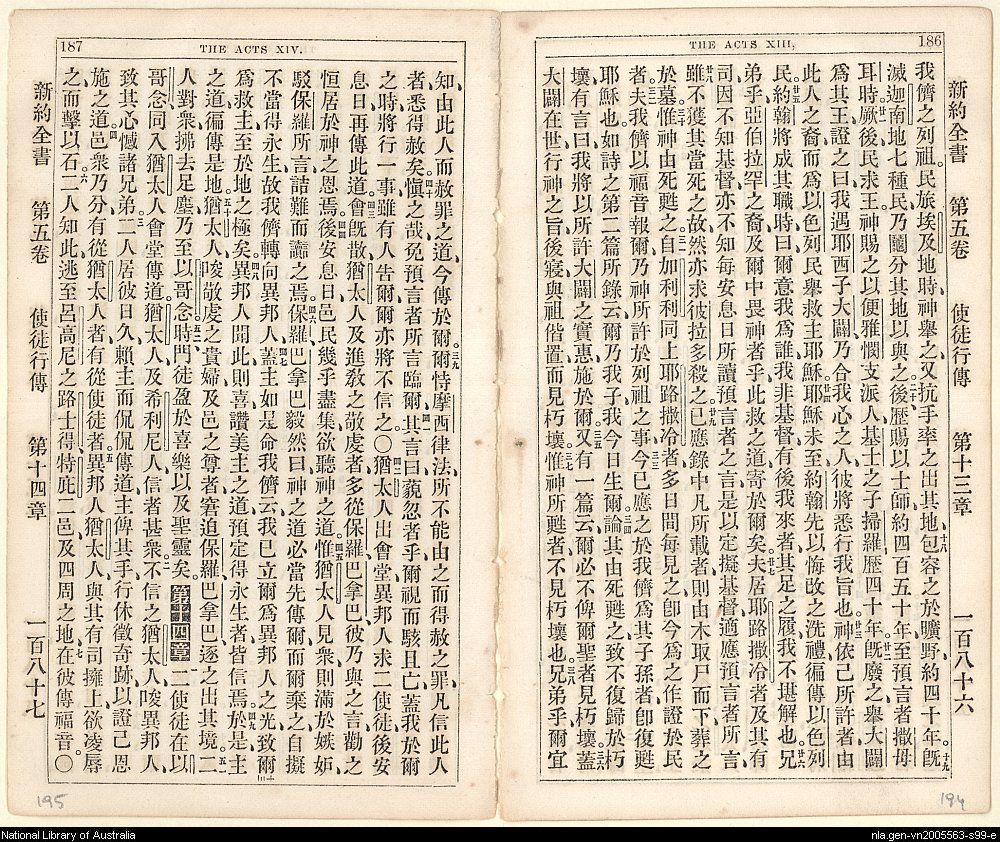 186
THE ACTS XIII,
新約全書 第五卷 使徒行傳 第十三章 一百八十六
我儕之列祖、民旅埃及地時神舉之、又抗手率之出其地、十八包容之於曠野約四十年、十九旣
滅迦南地七種民、乃鬮分其地以與之、二十後歷賜以士師、約四百五十年、至預言者撒母
耳時、廿一厥後民求王、神賜之以便雅憫支派人基士之子掃羅、歷四十年、廿二旣廢之、舉大闢
爲其王、證之曰、我遇耶西子大闢、乃合我心之人、彼將悉行我旨也、廿三神依己所許者、由
此人之裔而爲以色列民舉救主耶穌、廿四耶穌未至、約翰先以悔改之洗禮徧傳以色列
民、廿五約翰將成其職時、曰、爾意我爲誰、我非基督、有後我來者、其足之履、我不堪解也、廿六兄
弟乎、亞伯拉罕之裔、及爾中畏神者乎、此救之道寄於爾矣、廿七夫居耶路撒冷者及其有
司、因不知基督、亦不知每安息日所讀預言者之言、是以定擬基督、適應預言者所言、
廿八雖不獲其當死之故、然亦求彼拉多殺之、廿九已應錄中凡所載者、則由木取尸而下、葬之
於墓、三十惟神由死甦之、卅一自加利利同上耶路撒冷者、多日間每見之、卽今爲之作證於民
者、夫我儕以福音報爾、乃神所許於列祖之事、三三今已應之於我儕爲其子孫者、卽復甦
耶穌也、如詩之第二篇所錄云、爾乃我子、我今日生爾、三四論其由死甦之、致不復歸於朽
壞、有言曰、我將以所許大闢之實惠施於爾、三五又有一篇云、爾必不俾爾聖者見朽壞、三六蓋
大闢在世、行神之旨、後寢、與祖偕置、而見朽壞、三七惟神所甦者、不見朽壞也、三八兄弟乎、爾宜
194
187
THE ACTS XIV.
知、由此人而赦罪之道、今傳於爾、三九爾恃摩西律法、所不能由之而得赦之罪、凡信此人
者、悉得赦矣、四十愼之哉、免預言者所言臨爾、四一其言曰、藐忽者乎、爾視而駭且亡、蓋我於爾
之時、將行一事、雖有人告爾、爾亦將不信之、〇四二猶太人出會堂、異邦人求二使徒後安
息日再傳此道、四三會旣散、猶太人及進敎之敬虔者、多從保羅巴拿巴、彼乃與之言、勸之
恒居於神之恩焉、四四後安息日、邑民幾乎盡集、欲聽神之道、四五惟猶太人見衆、則滿於嫉妒、
駁保羅所言、詰難而讟之焉、四六保羅巴拿巴毅然曰、神之道必當先傳爾、而爾棄之、自擬
不當得永生、故我儕轉向異邦人、四七蓋主如是命我儕云、我已立爾爲異邦人之光、致爾
爲救主至於地之極矣、四八異邦人聞此、則喜讚美主之道、預定得永生者皆信焉、四九於是主
之道徧傳是地、五十猶太人唆敬虔之貴婦、及邑之尊者、窘迫保羅巴拿巴、逐之出其境、五一二
人對衆拂去足塵、乃至以哥念、五二時門徒盈於喜樂、以及聖靈矣、第十四章 一二使徒在以
哥念同入猶太人會堂傳道、猶太人及希利尼人信者甚衆、二不信之猶太人、唆異邦人、
致其心憾諸兄弟、三二人居彼日久、賴主而侃侃傳道、主俾其手行休徵奇跡、以證己恩
施之道、四邑衆乃分、有從猶太人者、有從使徒者、五異邦人猶太人、與其有司擁上、欲凌辱
之而擊以石、六二人知此、逃至呂高尼之路士得、特庇二邑、及四周之地、七在彼傳福音、〇
新約全書 第五卷 使徒行傳 第十四章 一百八十七
195
National Library of Australia
nla.gen-vn2005563-s99-e